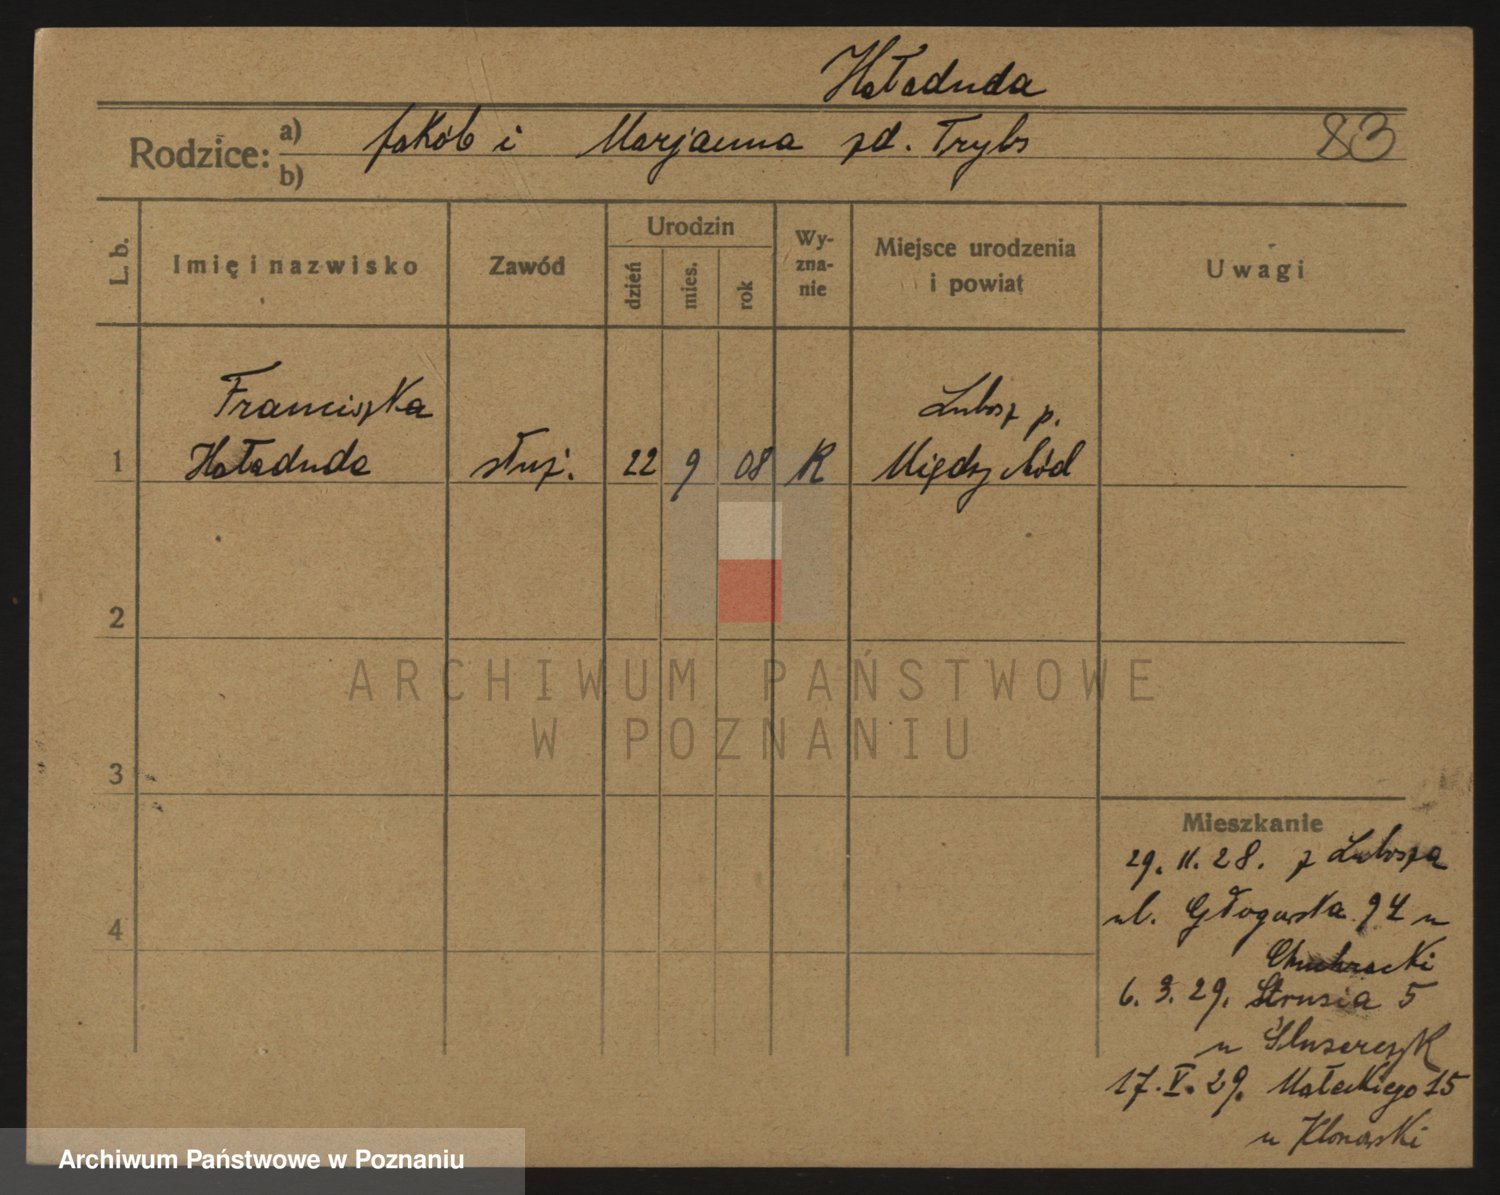 Haładuda
Rodzice: a) Jakób i Marjanna zd. Trybs 83
b)
L. b. Imię i nazwisko Zawód Urodzin dzień mies. rok Wyznanie Miejsce urodzenia i powiat Uwagi
Franciszka Lubosz p.
1 Haładuda służ. 22 9 08 K Międzychód
2
ARCHIWUM PAŃSTWOWE
W POZNANIU
3
Mieszkanie
29. 11. 28. z Lubosza
4 ul. Głogowska 94 u
6. 3. 29. Strusia 5
u Slusarczyk
17. V. 29. Małeckiego 15
u Klonowski
Archiwum Państwowe w Poznaniu